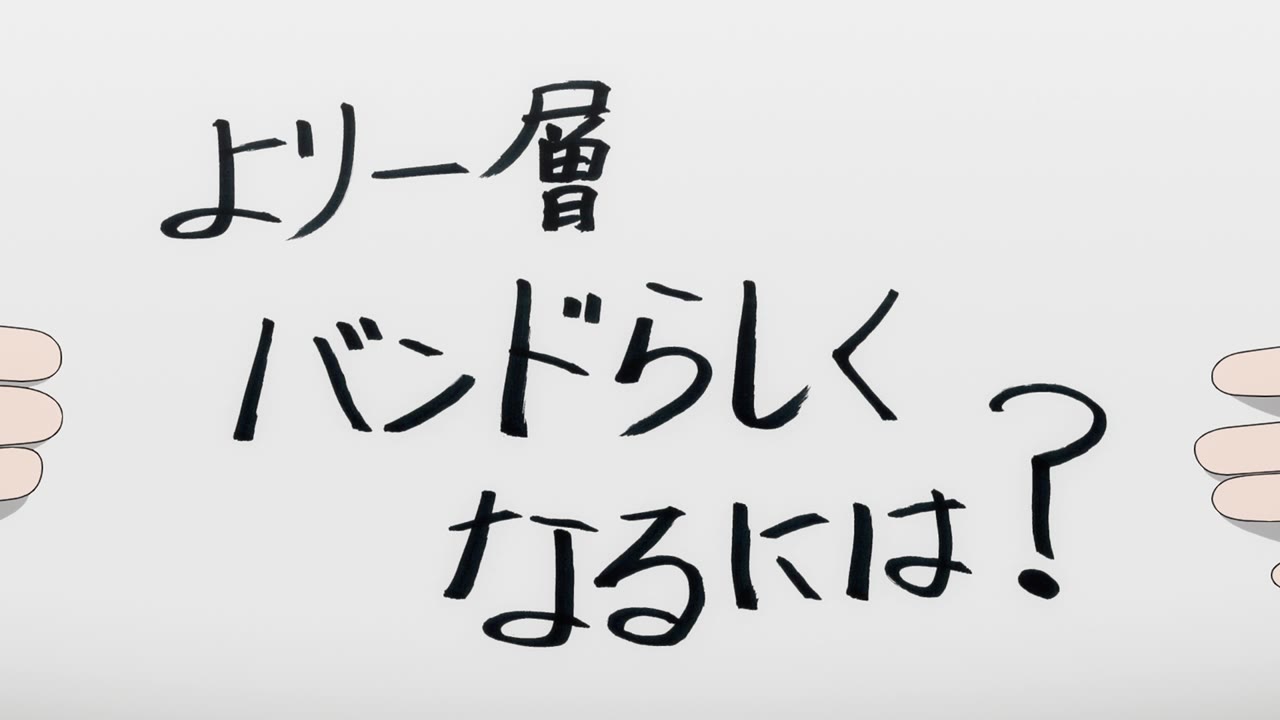 より一層
バンドらしく
なるには？